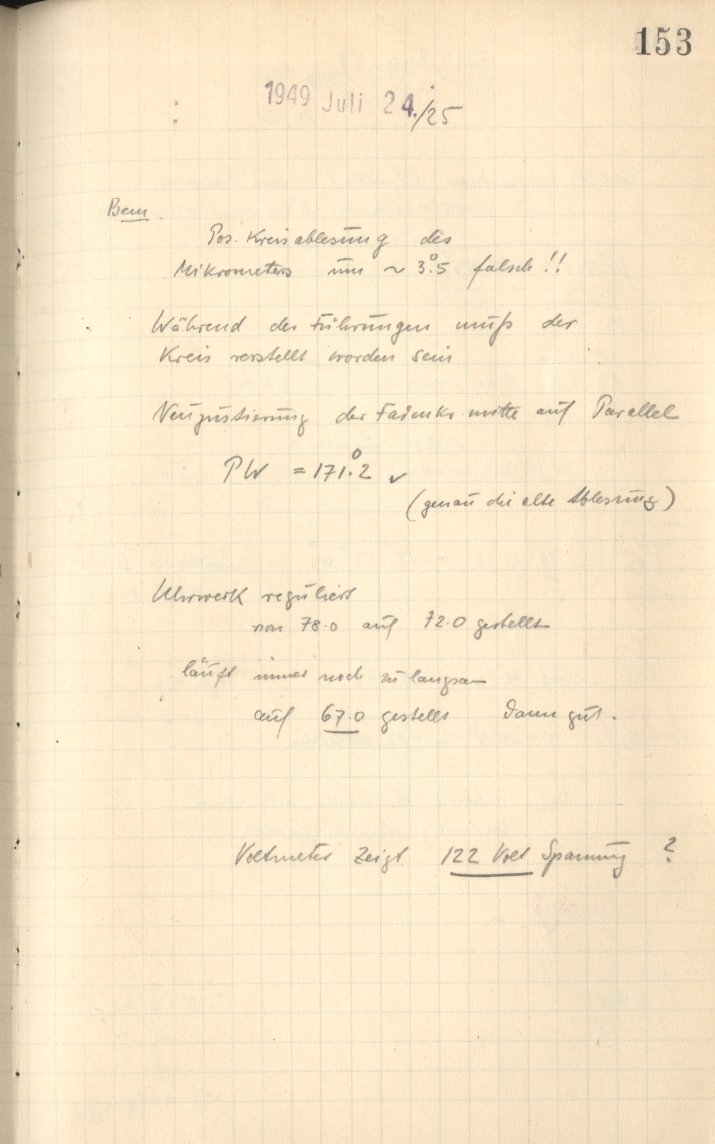 153
1949 Juli 24./25
Bem.
Pos. Kreisablesung des
Mikrometers um ~ 3°.5 falsch!!
Während der Führungen muß der
Kreis verstellt worden sein
Neujustierung der Fadenkr.mitte auf Parallel
PW = 171°.2 ✓
(genau die alte Ablesung)
Uhrwerk reguliert
von 78.0 auf 72.0 gestellt
läuft immer noch zu langsam
auf 67.0 gestellt dann gut.
Voltmeter zeigt 122 Volt Spannung ?